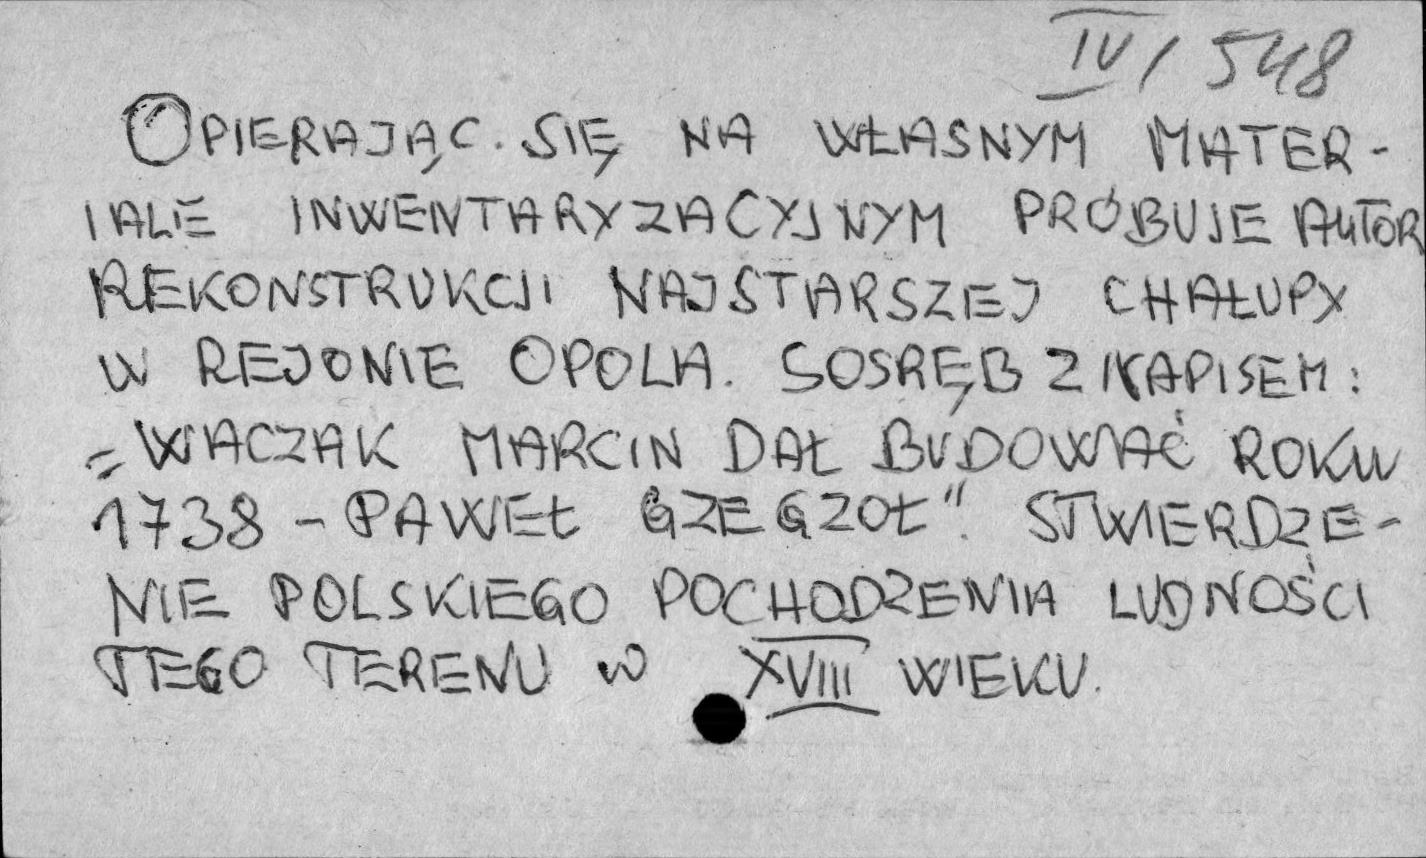 IV / 548
OPIERAJĄC. SIĘ NA WŁASNYM MATER-
IALE INWENTARYZACYJNYM PRÓBUJE AUTOR
REKONSTRUKCJI NAJSTARSZEJ CHAŁUPY
W REJONIE OPOLA. SOSRĘB Z NAPISEM:
„WACZAK MARCIN DAŁ BUDOWAĆ ROKU
1738 - PAWEŁ GZEGZOŁ". STWIERDZE-
NIE POLSKIEGO POCHODZENIA LUDNOŚCI
TEGO TERENU W XVIII WIEKU.